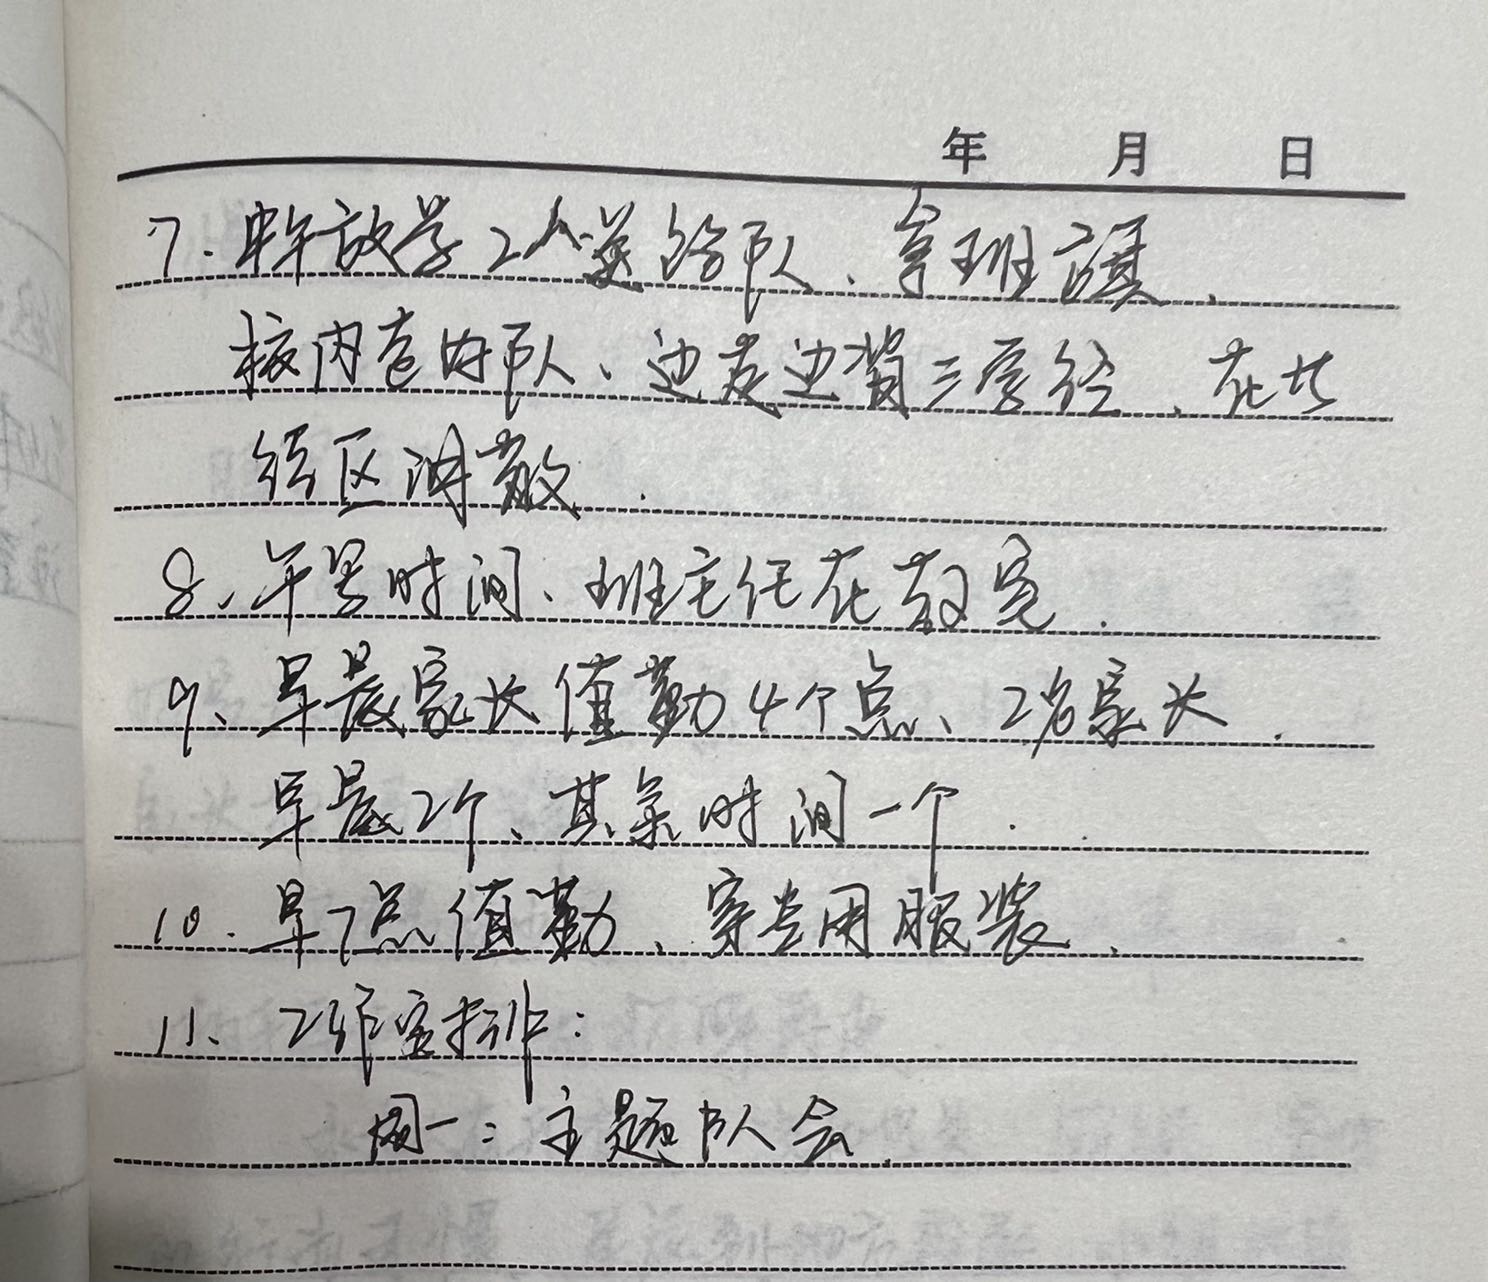 年 月 日
7. 中午放学2人送路队、拿班旗、
校内走好队、边走边背三字经、在北
京区解散.
8、午写时间、班主任在教室.
9、早晨家长值勤4个点、2名家长.
早晨2个、其余时间一个.
10. 早7点值勤、穿专用服装、
11、工作安排:
周一: 主题队会